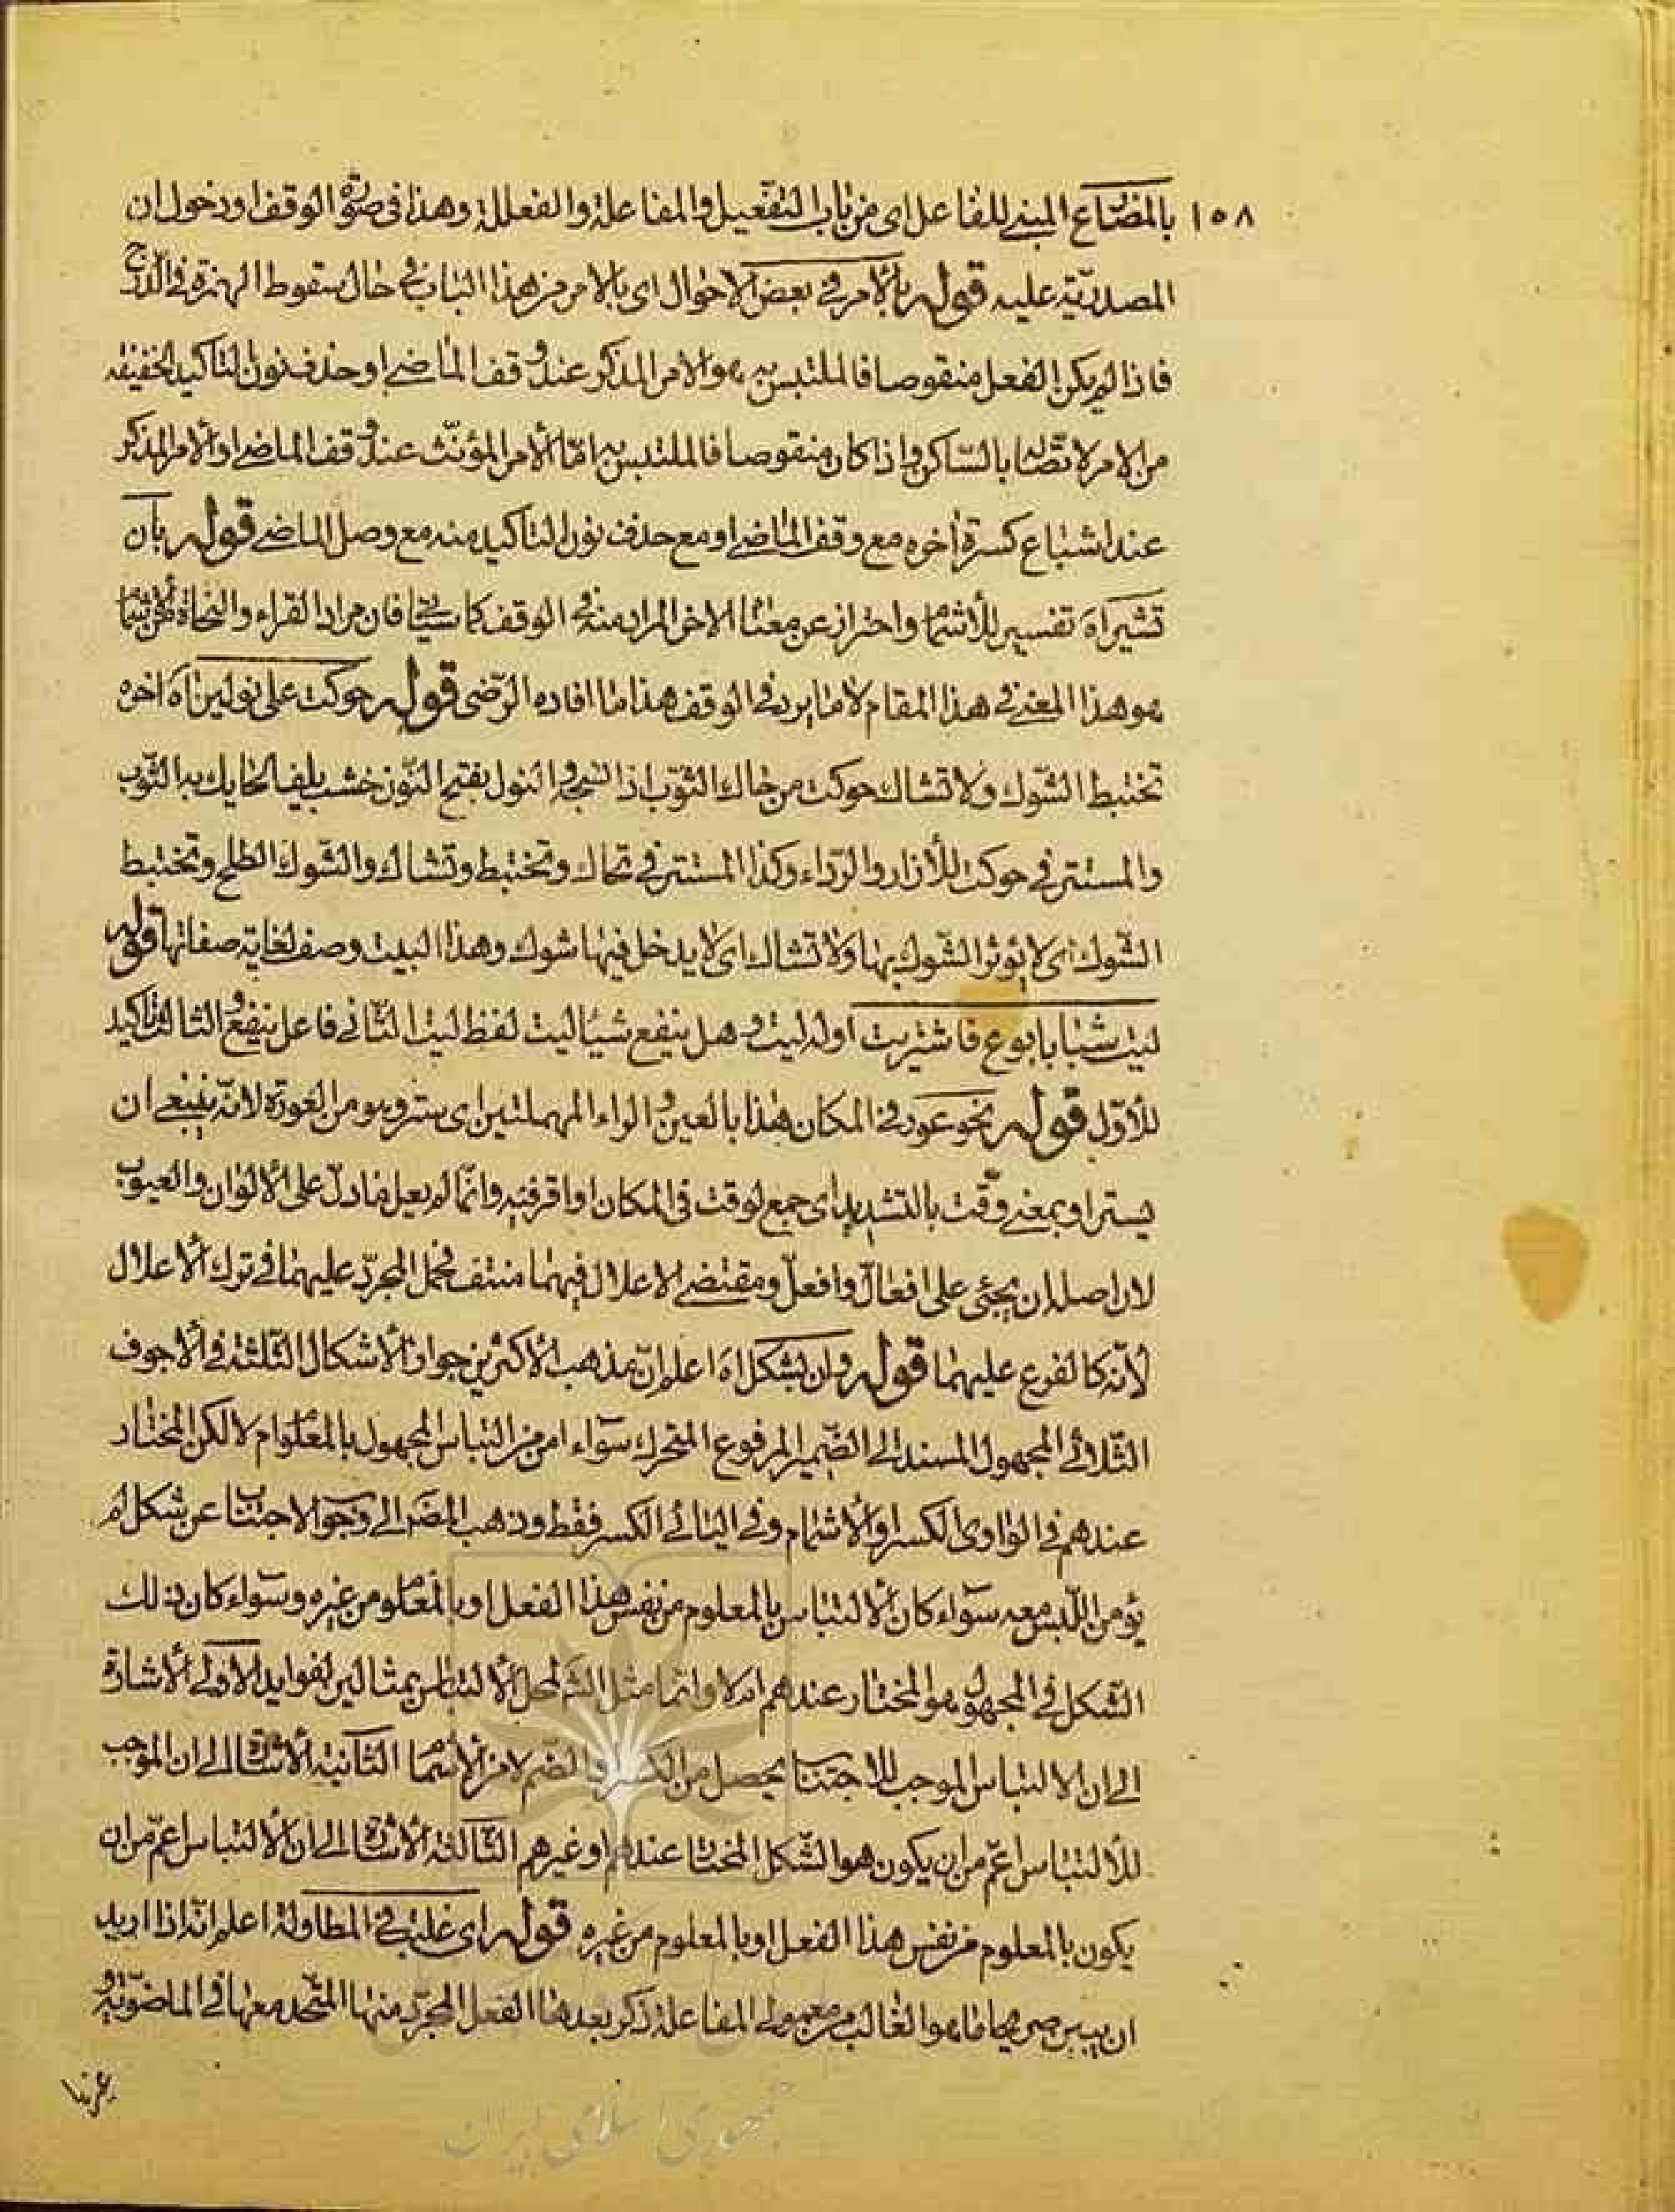 ١٥٨ بالمضارع المبنى للفاعل اى من باب التفعيل والمفاعلة والفعللة وهذا فى صورة الوقف او دخول ان
المصدريّة عليه قوله بالامر فى بعض الاحوال اى بالامر من هذا الباب فى حال سقوط الهمزة فى الدّرج
فاذا لم يكن الفعل منقوصا فالملتبس به هو الامر المذكر عند وقف الماضى او حذف نون التاكيد الخفيفه
من الامر لاتصاله بالسّاكن واذا كان منقوصا فالملتبس به امّا الأمر المؤنّث عند وقف الماضى او الأمر المذكر
عند اشباع كسرة اخره مع وقف الماضى او مع حذف نون التاكيد منه مع وصل الماضى قوله بان
تشير اه تفسير للأشمام واحتراز عن معناه الاخر المراد منه فى الوقف كما سيجئ فان مراد القراء والنحاة
هو هذا المعنى فى هذا المقام لا ما يريد فى الوقف هذا ما افاده الرّضى قوله حوكت على نولين اه اخره
تختبط الشّوك ولا تشاك حوكت من حاك الثوب اذا نسجه والنول بفتح النّون خشب يلف الحايك به الثّوب
والمستتر فى حوكت للأزار والرّداء وكذا المستتر فى تحاك وتختبط وتشاك والشّوك الطلح وتختبط
الشّوك اى لا يؤثر الشّوك بها ولا تشاك اى لا يدخل فيها شوك وهذا البيت وصف لغاية صفاتها قوله
ليت شبابا بوع فاشتريت اوله ليت وهل ينفع شيئا ليت لفظ ليت الثّانى فاعل ينفع والثالث تاكيد
للأوّل قوله نحو عور فى المكان هذا بالعين والراء المهملتين اى ستر وهو من العورة لانّه ينبغى ان
يستر او بمعنى وقّت بالتشديد اى جمع لوقت فى المكان او اقر فيه وانّما لم يعل ما دلّ على الألوان والعيوب
لان اصله ان يجئ على افعالّ وافعلّ ومقتضى الاعلال فيهما منتف فحمل المجرّد عليهما فى ترك الأعلال
لأنّه كالفرع عليهما قوله وان بشكل اه اعلم انّ مذهب الأكثرين جواز الأشكال الثّلثة فى الأجوف
الثّلاثى المجهول المسند الى الضّمير المرفوع المتحرك سواء امن من التباس المجهول بالمعلوم ام لا لكن المختار
عندهم فى الواوى الكسر او الأشمام وفى اليائى الكسر فقط وذهب المصّ الى وجوب الاجتناب عن شكل لم
يؤمن اللّبس معه سواء كان الألتباس بالمعلوم من نفس هذا الفعل او بالمعلوم من غيره وسواء كان ذلك
الشّكل فى المجهول هو المختار عندهم ام لا وانّما مثل لمحل الألتباس بمثالين لفوايد الاولى الأشارة
الى ان الالتباس الموجب للاجتناب يحصل من الكسر والضّم لا من الأشمام الثّانية الأشارة الى ان الموجب
للألتباس اعمّ من ان يكون هو الشّكل المختار عندهم او غيرهم الثّالثة الأشارة الى ان الألتباس اعمّ من ان
يكون بالمعلوم من نفس هذا الفعل او بالمعلوم من غيره قوله اى غلبت فى المطاولة اعلم انّه اذا اريد
ان يبين صريحا ما هو الغالب من معمولى المفاعلة ذكر بعدها الفعل المجرّد منها المتّحد معها فى الماضويّة و
جمهوری اسلامی ایران